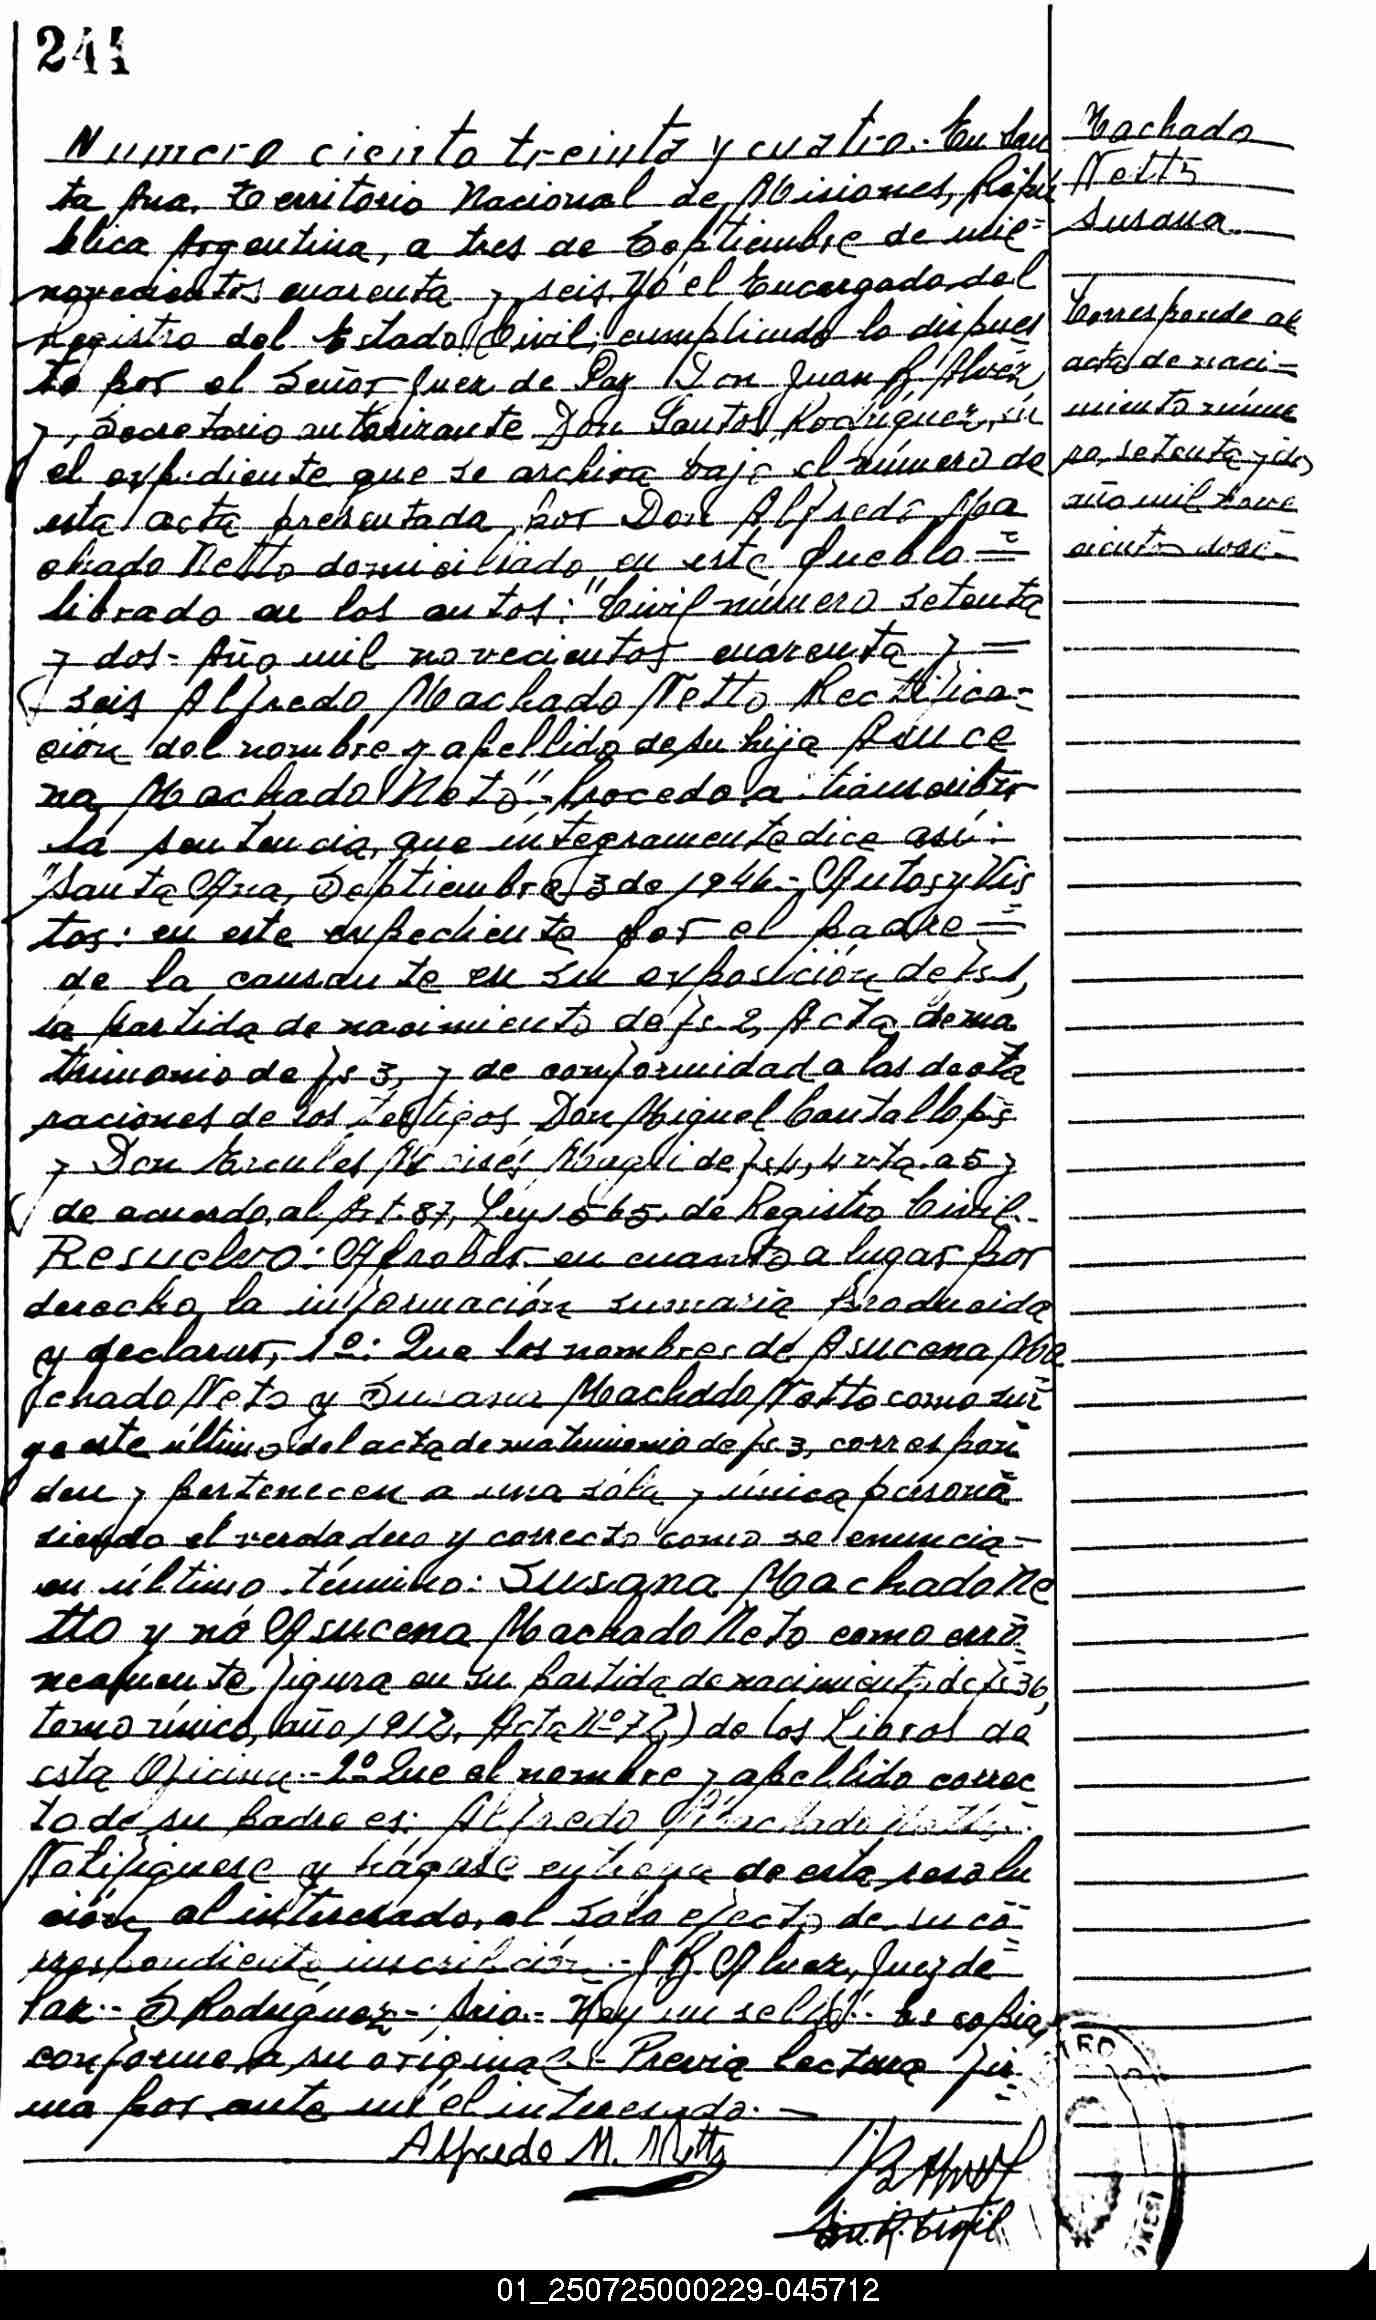 244
Numero ciento treinta y cuatro.- En San
ta Ana, Territorio Nacional de Misiones, Repú
blica Argentina, a tres de Septiembre de mil=
novecientos cuarenta y seis, Yo el Encargado del
Registro del Estado Civil, cumpliendo lo dispues
to por el Señor Juez de Paz Don Juan R. Alvez,
y, Secretario autorizante Don Santos Rodríguez, en
el expediente que se archiva bajo el número de
esta acta presentada por Don Alfredo Ma
chado Netto domiciliado en este pueblo=
librado en los autos: "Civil número setenta
y dos- Año mil novecientos cuarenta y =
seis Alfredo Machado Netto Rectifica=
ción del nombre y apellido de su hija Asuce
na Machado Neto".- procedo a transcribir
la sentencia, que íntegramente dice así:
"Santa Ana, Septiembre 3 de 1946.- Autos y Vis
tos: en este expediente por el padre =
de la causante en su exposición de fs. 1,
la partida de nacimiento de fs. 2, Acta de ma
trimonio de fs 3, y de conformidad a las decla
raciones de los testigos Don Miguel Cantallops
y Don Ercules Moisés de fs. 4, 4 vta. a 5 y
de acuerdo, al Art. 87, Ley 1565, de Registro Civil.-
Resuelvo: Aprobar en cuanto a lugar por
derecho la información sumaria producida
y declarar, 1º: Que los nombres de Asucena Ma
chado Neto y Susana Machado Netto como sur
ge este último del acta de matrimonio de fs. 3, correspon
den y pertenecen a una sóla y única persona
siendo el verdadero y correcto como se enuncia-
en último término: Susana Machado Ne
tto y nó Asucena Machado Neto como erró
neamente figura en su partida de nacimiento de fs 36,
tomo único, año 1912, Acta Nº 72,) de los Libros de
esta Oficina.- 2º Que el nombre y apellido correc
to de su padre es: Alfredo Machado Netto.
Notifíquese y hágase entrega de esta resolu
ción al interesado, al sólo efecto de su co
rrespondiente inscripción.- J R. Alvez, Juez de
Paz.- S Rodríguez-. Srio.- Hay un sello".- Es copia
conforme a su original.- Previa lectura fir
ma por ante mí el interesado. -
Alfredo M. Netto
Machado
Netto
Susana.
Corresponde al
acta de naci-
miento núme
ro, setenta y dos,
año mil nove
cientos doce.-
01_250725000229-045712